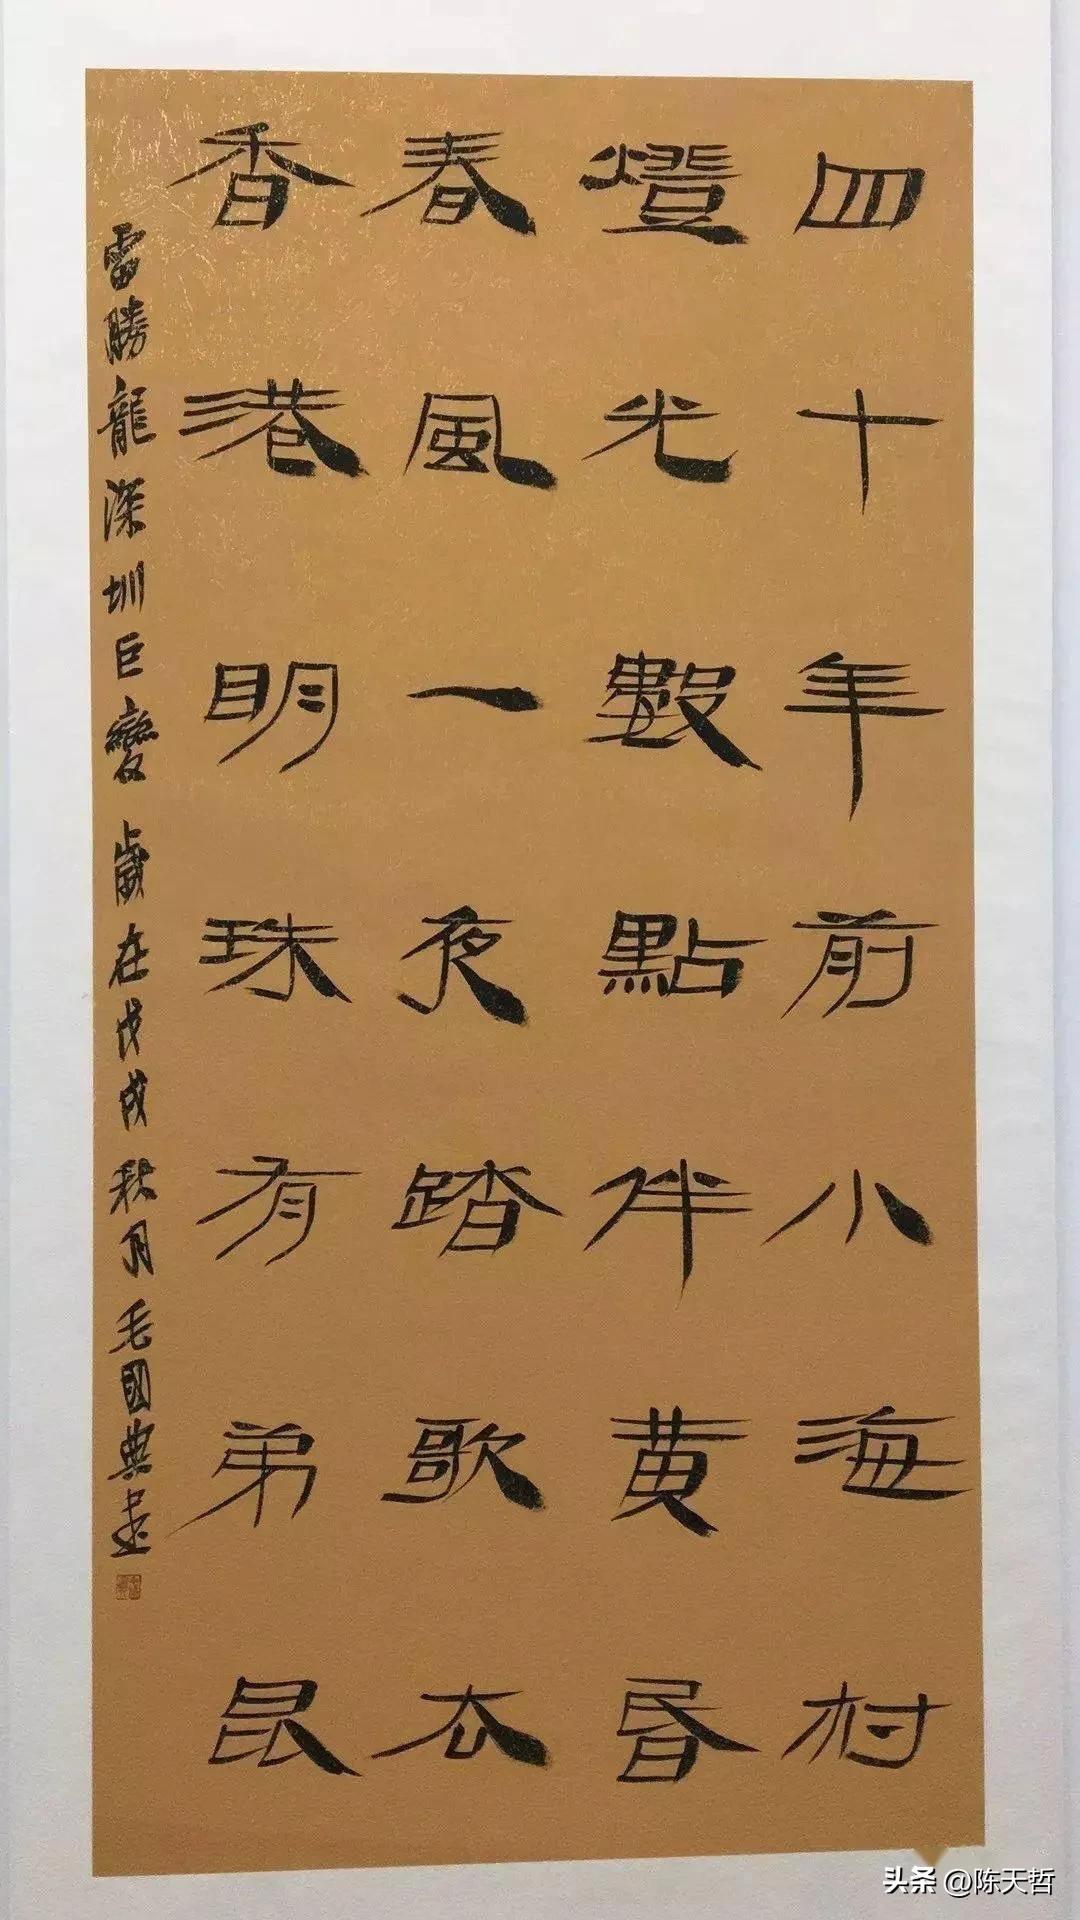 四十年前小海村
燈光數點伴黃昏
春風一夜踏歌去
香港明珠有弟昆
雷勝龍深圳巨變 歲在戊戌秋月 毛國典書
头条 @陈天哲